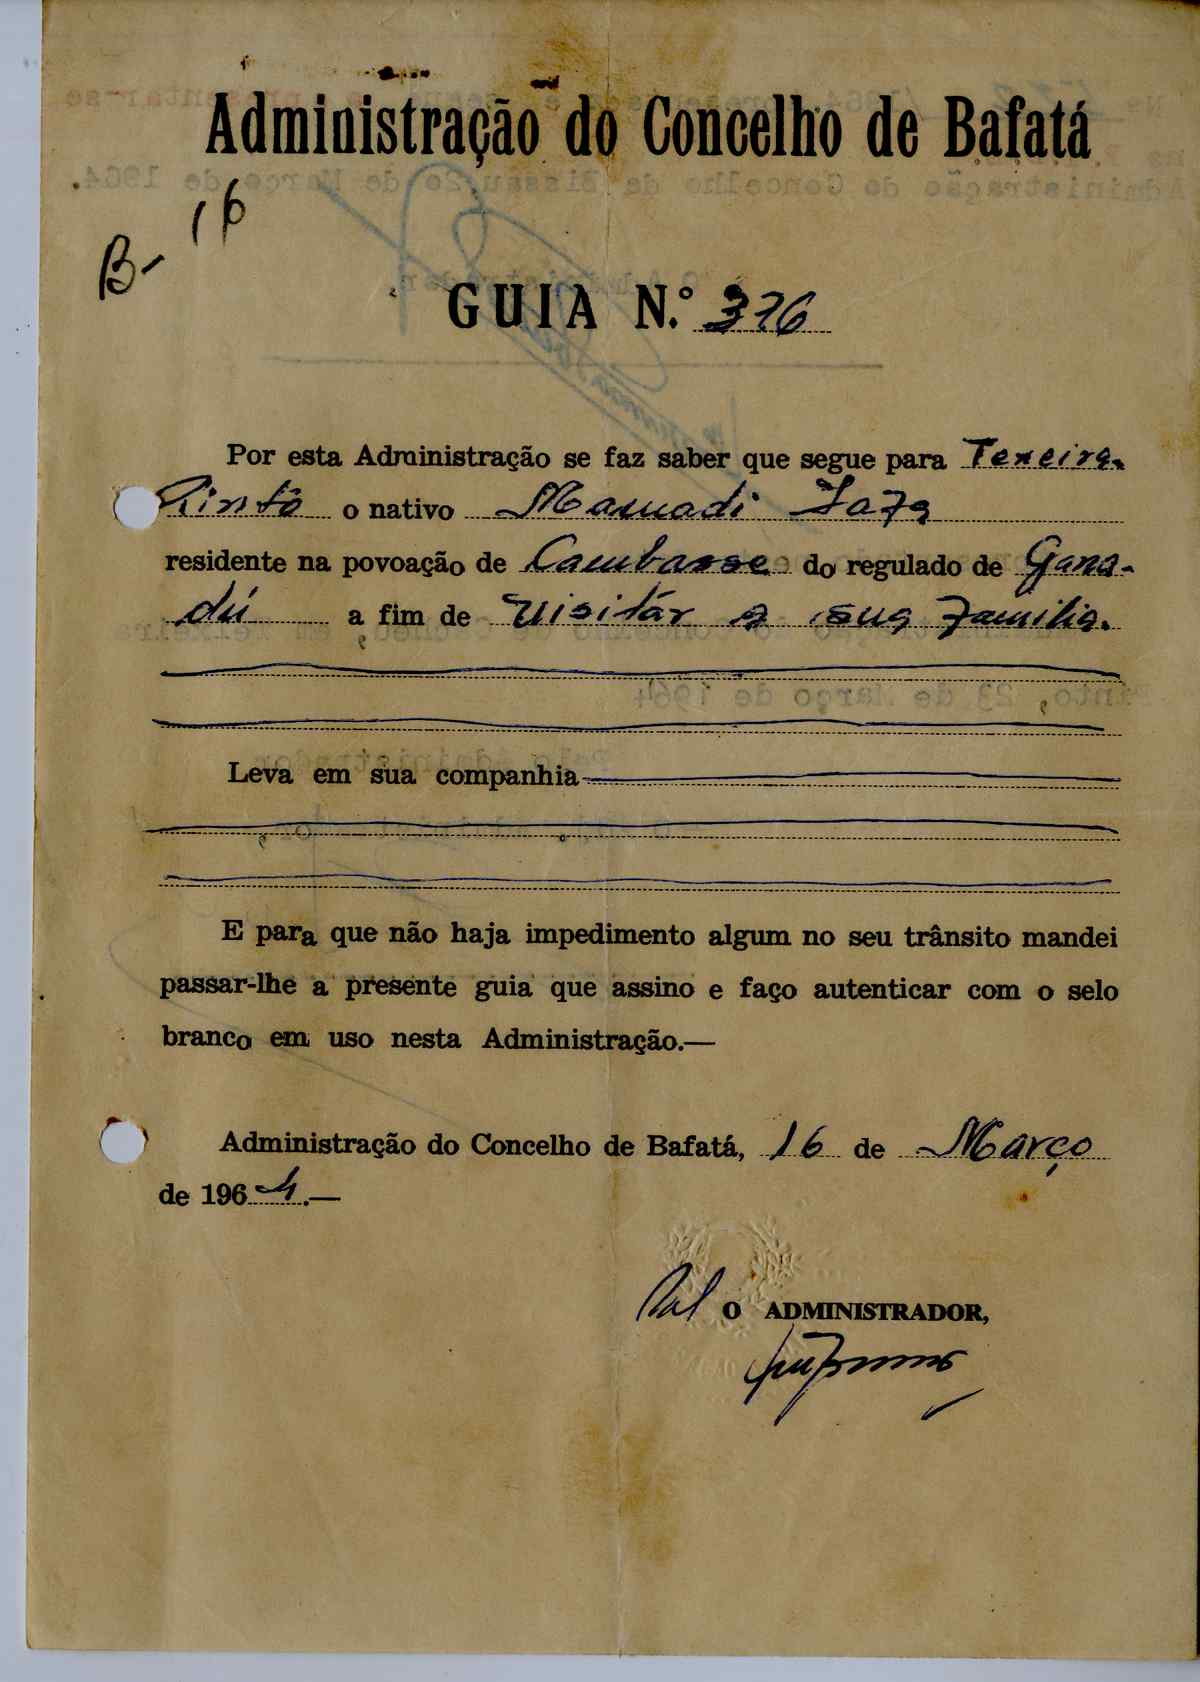 Administração do Concelho de Bafatá
B- 16
GUIA N.º 376
Por esta Administração se faz saber que segue para Texeira
Pinto o nativo Mamadi
residente na povoação de Cambasse do regulado de Gana-
dú a fim de visitár a sua familia.
Leva em sua companhia
E para que não haja impedimento algum no seu trânsito mandei
passar-lhe a presente guia que assino e faço autenticar com o selo
branco em uso nesta Administração.—
Administração do Concelho de Bafatá, 16 de Março
de 1964.—
O ADMINISTRADOR,